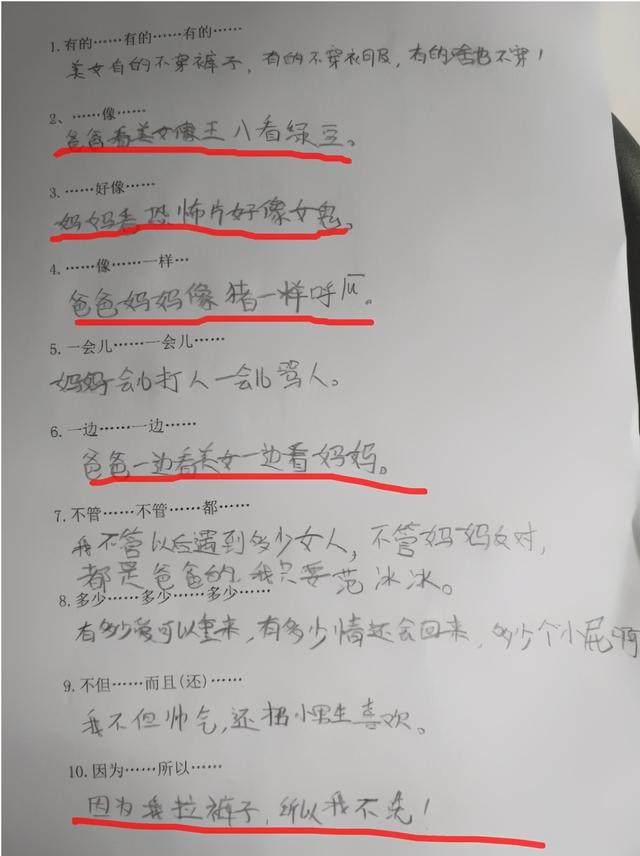 1.有的……有的……有的……
美女有的不穿裤子，有的不穿衣服，有的啥也不穿！
2、……像……
爸爸看美女像王八看绿豆。
3.……好像……
妈妈看恐怖片好像女鬼。
4.……像……一样…
爸爸妈妈像猪一样呼
5.一会儿……一会儿……
妈妈一会儿打人一会儿骂人。
6.一边……一边……
爸爸一边看美女一边看妈妈。
7.不管……不管……都……
我不管以后遇到多少女人，不管妈妈反对，
都是爸爸的，我只要范冰冰。
8.多少……多少……多少……
有多少爱可以重来，有多少情还会回来，多少个小屁
9.不但……而且(还)……
我不但帅气，还招小男生喜欢。
10.因为……所以……
因为我拉裤子，所以我不洗！